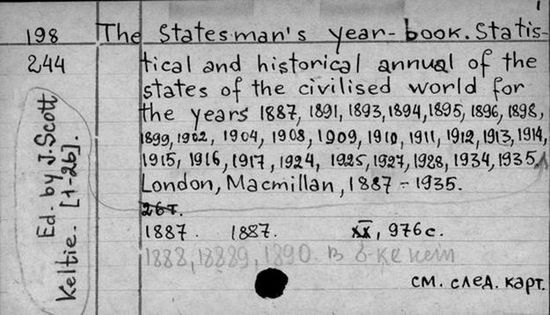 1
198 The Statesman's year-book. Statis-
244 tical and historical annual of the
states of the civilised world for
the years 1887, 1891, 1893, 1894, 1895, 1896, 1898,
1899, 1902, 1904, 1908, 1909, 1910, 1911, 1912, 1913, 1914,
1915, 1916, 1917, 1924, 1925, 1927, 1928, 1934, 1935,
London, Macmillan, 1887 - 1935.
26т.
1887. 1887. XX, 976 с.
1888, 18889, 1890. в б-ке нет
см. след. карт.
Ed. by J. Scott
Keltie. [1-26].